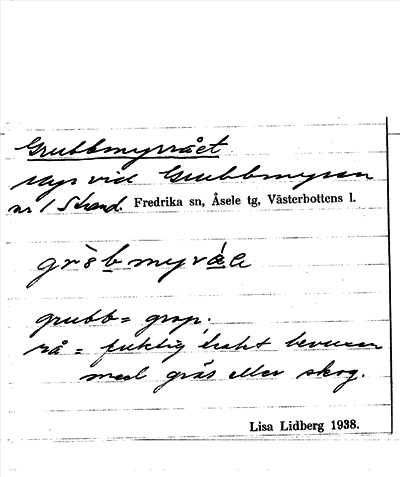 Grubbmyrrået
Myr vid Grubbmyran
nr 1 Strand. Fredrika sn, Åsele tg, Västerbottens l.
grubb = grop.
rå = fuktig trakt bevuxen
med gräs eller skog.
Lisa Lidberg 1938.